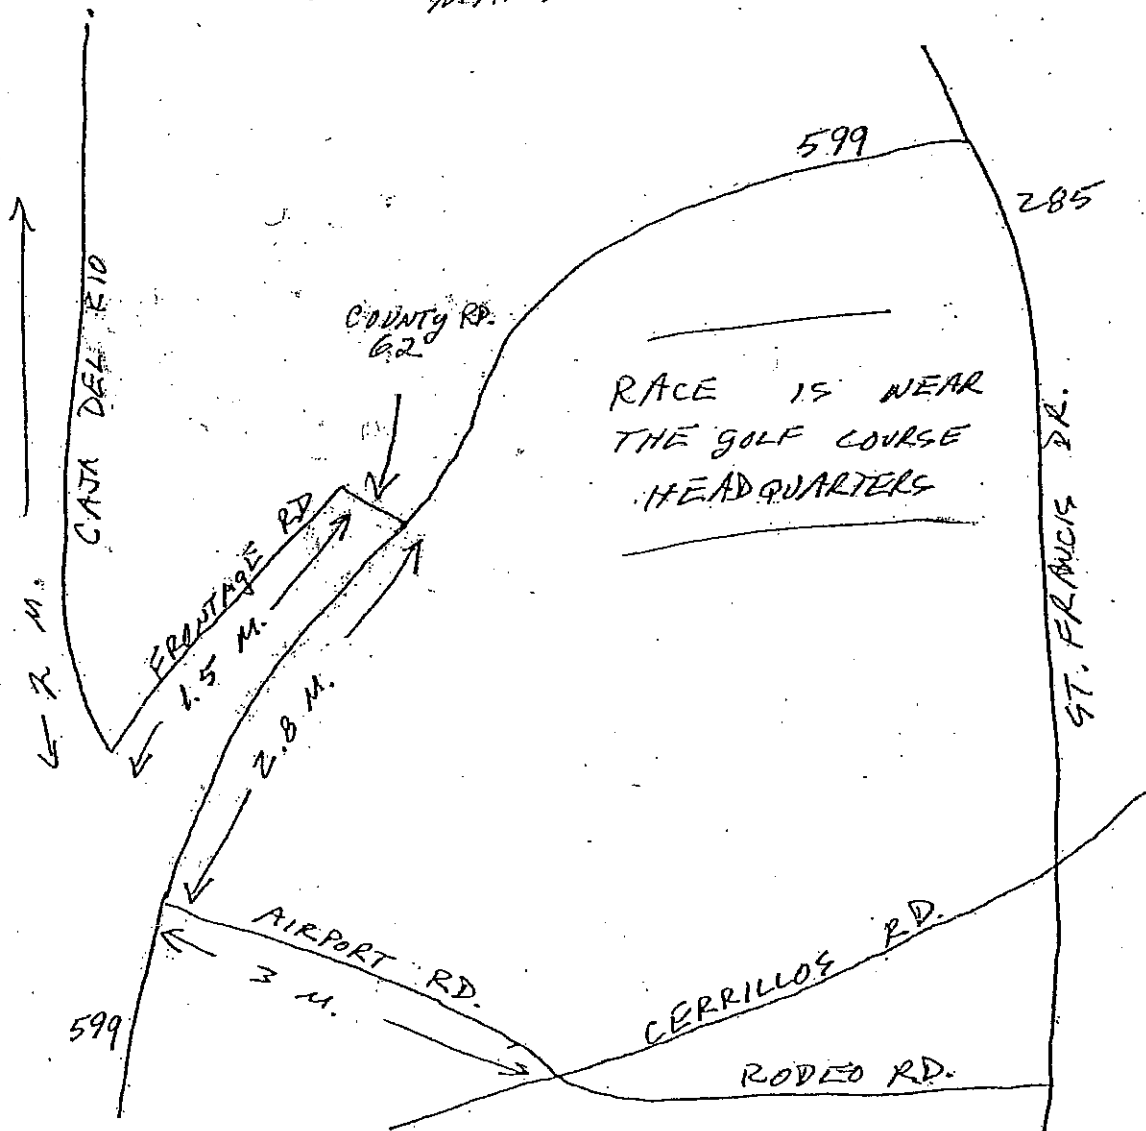 599
285
CAJA DEL RIO
COUNTY RD.
62
RACE IS NEAR
THE GOLF COURSE
HEADQUARTERS
ST. FRANCIS DR.
FRONTAGE RD
1.5 M.
2.8 M.
2 M.
AIRPORT RD.
3 M.
CERRILLOS RD.
599
RODEO RD.